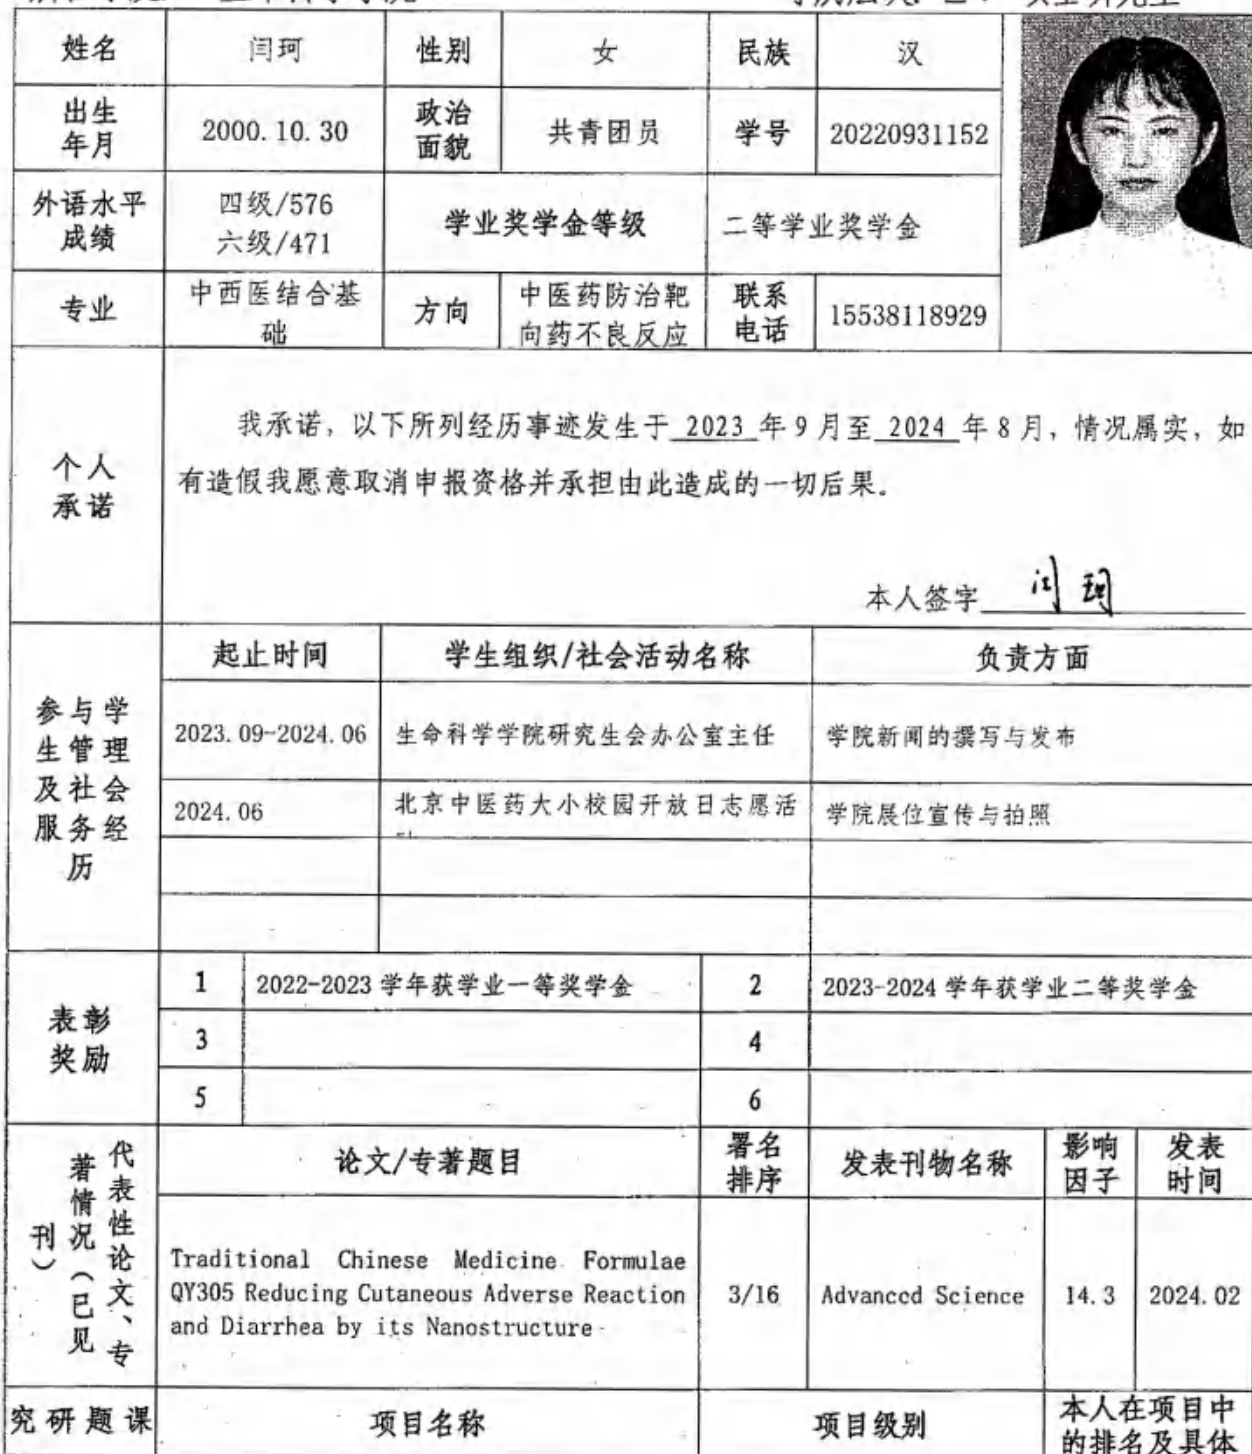 姓名 闫珂 性别 女 民族 汉
出生年月 2000.10.30 政治面貌 共青团员 学号 20220931152
外语水平成绩 四级/576 六级/471 学业奖学金等级 二等学业奖学金
专业 中西医结合基础 方向 中医药防治靶向药不良反应 联系电话 15538118929
个人承诺
我承诺，以下所列经历事迹发生于 2023 年 9 月至 2024 年 8 月，情况属实，如
有造假我愿意取消申报资格并承担由此造成的一切后果。
本人签字 闫珂
参与学生管理及社会服务经历
起止时间 学生组织/社会活动名称 负责方面
2023.09-2024.06 生命科学学院研究生会办公室主任 学院新闻的撰写与发布
2024.06 北京中医药大小校园开放日志愿活 学院展位宣传与拍照
表彰奖励
1 2022-2023 学年获学业一等奖学金 2 2023-2024 学年获学业二等奖学金
3 4
5 6
代表性论文、专著情况（已见刊）
论文/专著题目 署名排序 发表刊物名称 影响因子 发表时间
Traditional Chinese Medicine Formulae
QY305 Reducing Cutaneous Adverse Reaction
and Diarrhea by its Nanostructure
3/16 Advanced Science 14.3 2024.02
究研题课 项目名称 项目级别 本人在项目中
的排名及具体